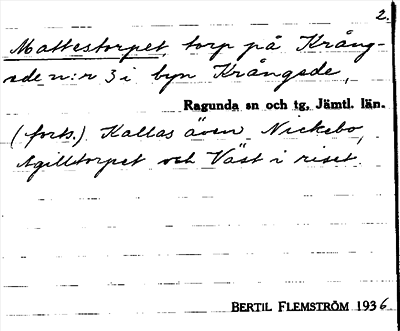 2.
Mattestorpet, torp på Krång-
ede n:r 3 i byn Krångede,
Ragunda sn och tg, Jämtl. län.
(forts.) Kallas även Nickebo,
Agilltorpet och Väst i riset.
BERTIL FLEMSTRÖM 1936.